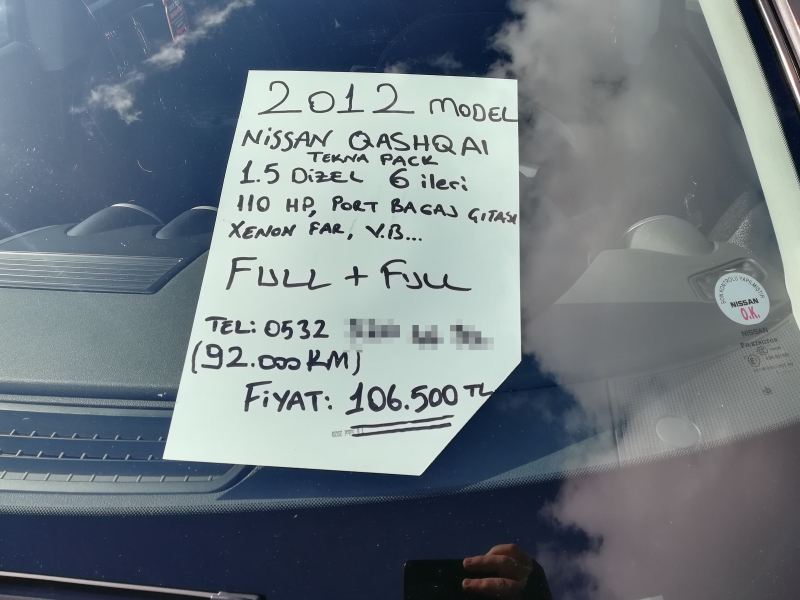 2012 MODEL
NİSSAN QASHQAI
TEKNA PACK
1.5 DİZEL 6 ileri
110 HP, PORT BAGAJ ÇITASI
XENON FAR, V.B...
FULL + FULL
TEL: 0532
(92.000KM)
FİYAT: 106.500 TL
NISSAN
O.K.
NISSAN
PILKINGTON